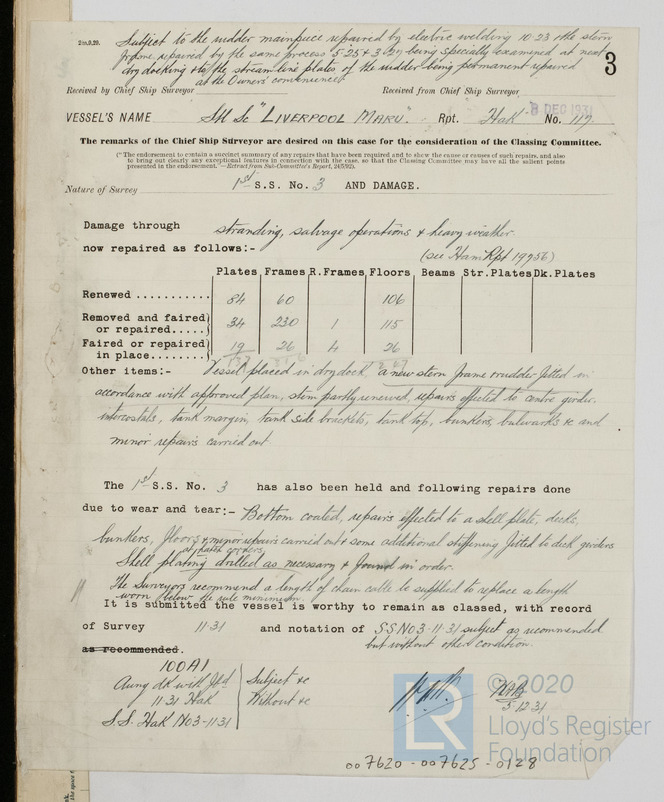 2m,9,29.
Subject to the rudder mainpiece repaired by electric welding 10·23 & the stern
frame repaired by the same process 5·25 & 3·27 being specially examined at next
dry docking & to the stream line plates of the rudder being permanent repaired
at the Owners' convenience
3
Received by Chief Ship Surveyor
Received from Chief Ship Surveyor
8 DEC 1931
VESSEL'S NAME St Sc "LIVERPOOL MARU". Rpt. Hak No. 117.
The remarks of the Chief Ship Surveyor are desired on this case for the consideration of the Classing Committee.
("The endorsement to contain a succinct summary of any repairs that have been required and to show the cause or causes of such repairs, and also
to bring out clearly any exceptional features in connection with the case, so that the Classing Committee may have all the salient points
presented in the endorsement."—Extract from Sub-Committee's Report, 24/5/92).
Nature of Survey 1st S.S. No. 3 AND DAMAGE.
Damage through stranding, salvage operations & heavy weather
now repaired as follows:-
(see Ham Rpt 19956)
Plates Frames R.Frames Floors Beams Str.Plates Dk.Plates
Renewed ........... 84 60 106
Removed and faired
or repaired..... 34 230 1 115
Faired or repaired
in place....... 19 26 4 26
Other items:- Vessel placed in dry dock a new stern frame & rudder fitted in
accordance with approved plan, stem partly renewed, repairs effected to centre girder,
intercostals, tank margin, tank side brackets, tank top, bunkers, bulwarks &c and
minor repairs carried out
The 1st S.S. No. 3 has also been held and following repairs done
due to wear and tear:- Bottom coated, repairs effected to a shell plate, decks,
bunkers, floors & minor repairs carried out & some additional stiffening fitted to deck girders
at hatch corners.
Shell plating drilled as necessary & found in order.
The Surveyors recommend a length of chain cable be supplied to replace a length
worn below the rule minimum.
It is submitted the vessel is worthy to remain as classed, with record
of Survey 11·31 and notation of S.S No3-11·31 subject as recommended
but without other condition.
as recommended.
100A1
Subject &c
11·31 Hak
Without &c
S.S. Hak No3-11·31
5·12·31
LR
© 2020
Lloyd's Register
Foundation
007620-007625-0128